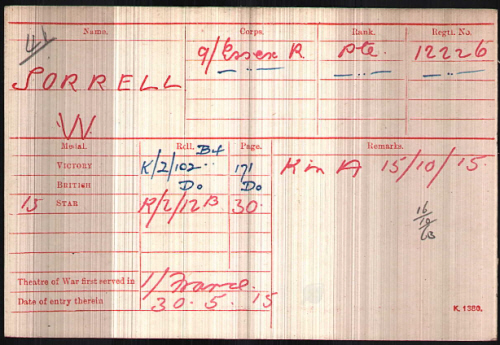 Name. Corps. Rank. Regtl. No.
SORRELL 9/Essex R Pte. 12226
W
Medal. Roll. Page. Remarks.
VICTORY K/2/102 B4 171 K in A 15/10/15.
BRITISH Do Do
15 STAR R/2/12B 30.
Theatre of War first served in 1/France.
Date of entry therein 30.5.15
K. 1380.